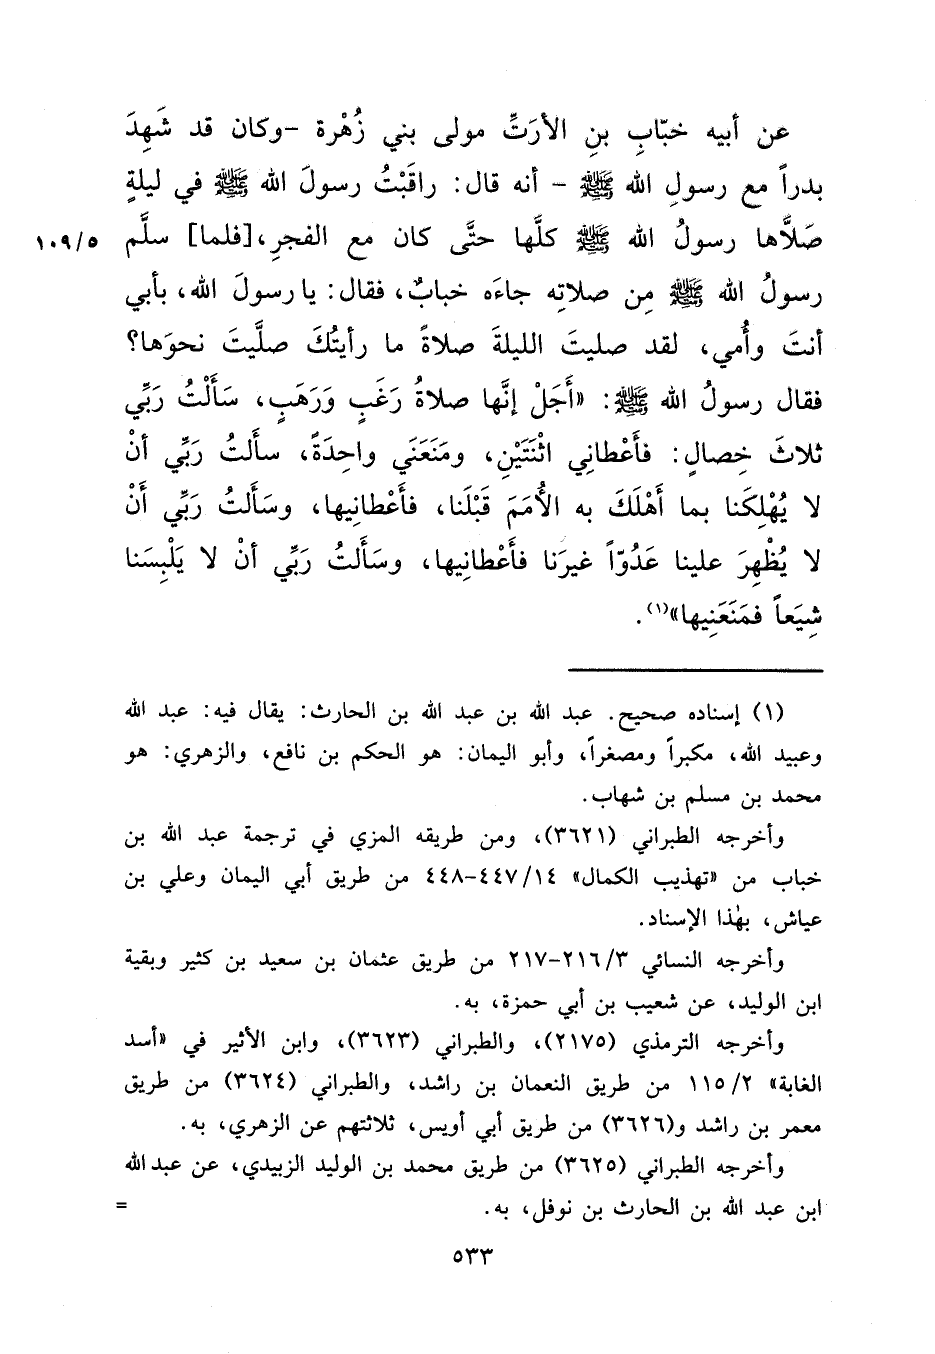 عن أبيه خبّابِ بنِ الأرَتِّ مولى بني زُهْرة -وكان قد شَهِدَ
بدراً مع رسولِ الله ﷺ - أنه قال: راقَبْتُ رسولَ الله ﷺ في ليلةٍ
صَلاَّها رسولُ الله ﷺ كلَّها حتَّى كان مع الفجرِ، [فلما] سلَّم ١٠٩/٥
رسولُ الله ﷺ مِن صلاتِه جاءَه خبابٌ، فقال: يا رسولَ الله، بأبي
أنتَ وأُمي، لقد صليتَ الليلةَ صلاةً ما رأيتُكَ صليَّتَ نحوَها؟
فقال رسولُ الله ﷺ: «أَجَلْ إنَّها صلاةُ رَغَبٍ وَرَهَبٍ، سَأَلْتُ رَبِّي
ثلاثَ خِصالٍ: فأَعْطاني اثْنَتَيْنِ، ومَنَعَنَي واحِدَةً، سألتُ رَبِّي أنْ
لا يُهْلِكَنا بما أَهْلَكَ به الأُمَمَ قَبْلَنا، فأَعْطانِيها، وسَأَلتُ رَبِّي أَنْ
لا يُظْهِرَ علينا عَدُوّاً غيرَنا فأَعْطانِيها، وسَأَلتُ رَبِّي أنْ لا يَلْبِسَنا
شِيَعاً فمَنَعَنِيها»(١).
(١) إسناده صحيح. عبد الله بن عبد الله بن الحارث: يقال فيه: عبد الله
وعبيد الله، مكبراً ومصغراً، وأبو اليمان: هو الحكم بن نافع، والزهري: هو
محمد بن مسلم بن شهاب.
وأخرجه الطبراني (٣٦٢١)، ومن طريقه المزي في ترجمة عبد الله بن
خباب من «تهذيب الكمال» ٤٤٧/١٤-٤٤٨ من طريق أبي اليمان وعلي بن
عياش، بهٰذا الإسناد.
وأخرجه النسائي ٢١٦/٣-٢١٧ من طريق عثمان بن سعيد بن كثير وبقية
ابن الوليد، عن شعيب بن أبي حمزة، به.
وأخرجه الترمذي (٢١٧٥)، والطبراني (٣٦٢٣)، وابن الأثير في «أسد
الغابة» ١١٥/٢ من طريق النعمان بن راشد، والطبراني (٣٦٢٤) من طريق
معمر بن راشد و(٣٦٢٦) من طريق أبي أويس، ثلاثتهم عن الزهري، به.
وأخرجه الطبراني (٣٦٢٥) من طريق محمد بن الوليد الزبيدي، عن عبد الله
ابن عبد الله بن الحارث بن نوفل، به. =
٥٣٣